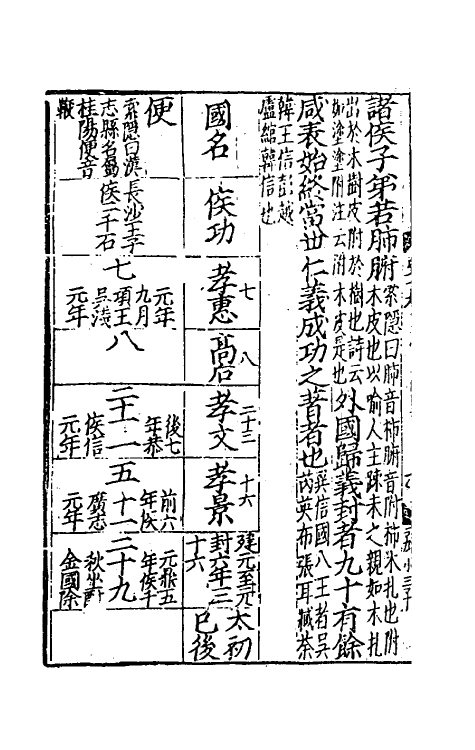 諸侯子弟若肺腑索隱曰肺音柿腑音附柿木札也附
木皮也以喻人主疎末之親如木札
出於木樹皮附於樹也詩云
如塗塗附注云附木皮是也外國歸義封者九十有餘
咸表始終當世仁義成功之著者也異信國八王者吳
芮英布張耳臧荼
韓王信彭越
盧綰韓信也
國名
侯功
孝惠七
高后八
孝文二十三
孝景十六
建元至元
封六年三
十六
太初
已後
便
索隱曰漢
志縣名屬
桂陽便音
鞭
長沙王子
侯二千石
七
元年
九月
頃王
吳淺
元年
八
二十二
後七
年恭
侯信
元年
一
五
前六
年侯
廣志
元年
十一
二十九
元鼎五
年侯千
秋坐酎
金國除